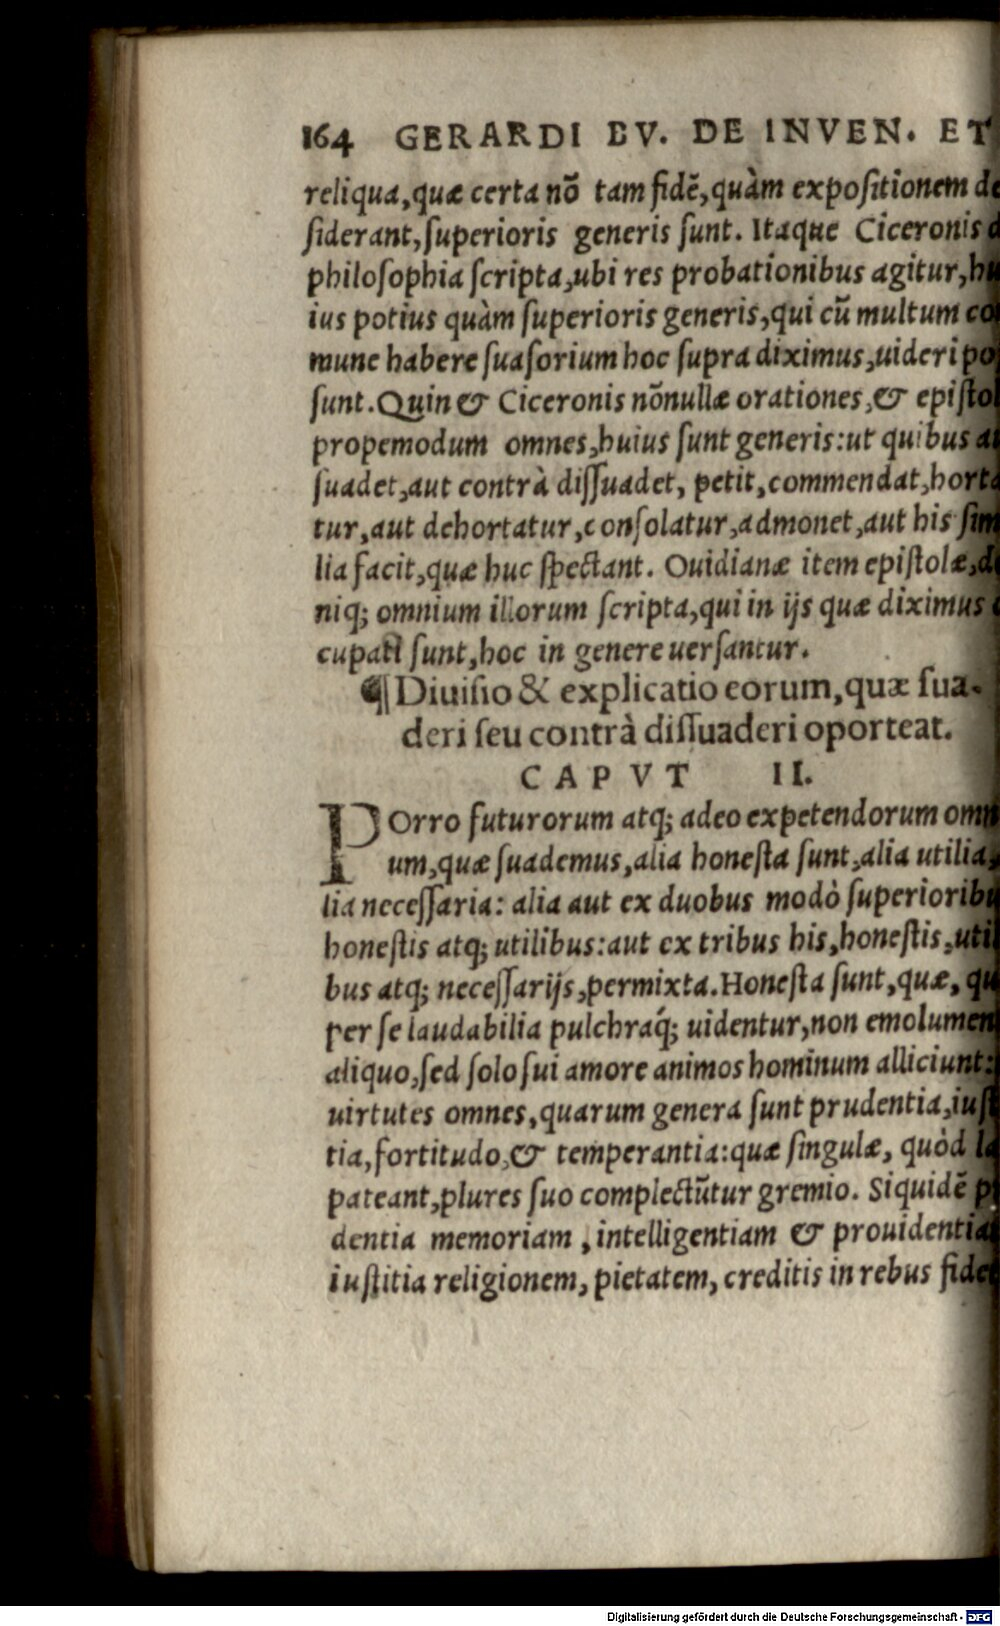 164 GERARDI BV. DE INVEN. ET
reliqua,quæ certa nō tam fidē,quàm expositionem de
siderant,superioris generis sunt. Itaque Ciceronis
philosophia scripta,ubi res probationibus agitur,hu
ius potius quàm superioris generis,qui cū multum co
mune habere suasorium hoc supra diximus,uideri pos
sunt.Quin & Ciceronis nōnullæ orationes,& epistol
propemodum omnes,huius sunt generis:ut quibus a
suadet,aut contrà dissuadet, petit,commendat,horta
tur,aut dehortatur,consolatur,admonet,aut his sim
lia facit,quæ huc spectant. Ouidianæ item epistolæ,de
niq; omnium illorum scripta,qui in ijs quæ diximus
cupati sunt,hoc in genere uersantur.
¶Diuisio & explicatio eorum,quæ sua-
deri seu contrà dissuaderi oporteat.
CAPVT II.
POrro futurorum atq; adeo expetendorum omni
um,quæ suademus,alia honesta sunt,alia utilia,
lia necessaria: alia aut ex duobus modò superioribu
honestis atq; utilibus:aut ex tribus his,honestis,utili
bus atq; necessarijs,permixta.Honesta sunt,quæ, qu
per se laudabilia pulchraq́; uidentur,non emolumen
aliquo,sed solo sui amore animos hominum alliciunt:
uirtutes omnes,quarum genera sunt prudentia,iust
tia,fortitudo,& temperantia:quæ singulæ, quòd la
pateant,plures suo complectūtur gremio. Siquidē p
dentia memoriam,intelligentiam & prouidentia
iustitia religionem,pietatem,creditis in rebus fide
Digitalisierung gefördert durch die Deutsche Forschungsgemeinschaft - DFG